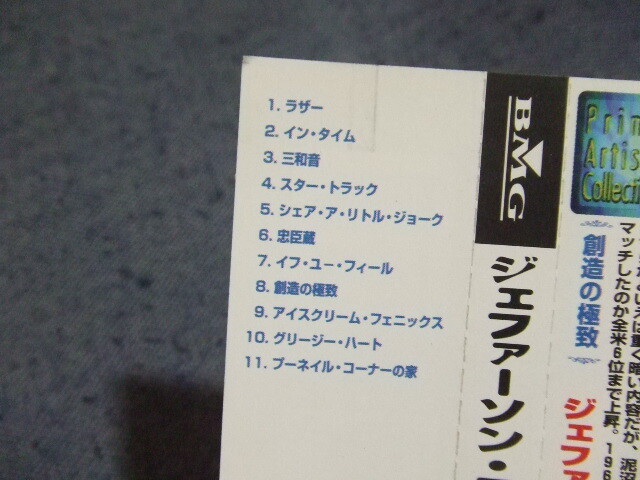 1. ラザー
2. イン・タイム
3. 三和音
4. スター・トラック
5. シェア・ア・リトル・ジョーク
6. 忠臣蔵
7. イフ・ユー・フィール
8. 創造の極致
9. アイスクリーム・フェニックス
10. グリージー・ハート
11. プーネイル・コーナーの家
BMG
ジェファーソン・
Prim
Artis
Collecti
創造の極致
ジェファ
重く暗い内容だが、泥沼
マッチしたのか全米6位まで上昇。196